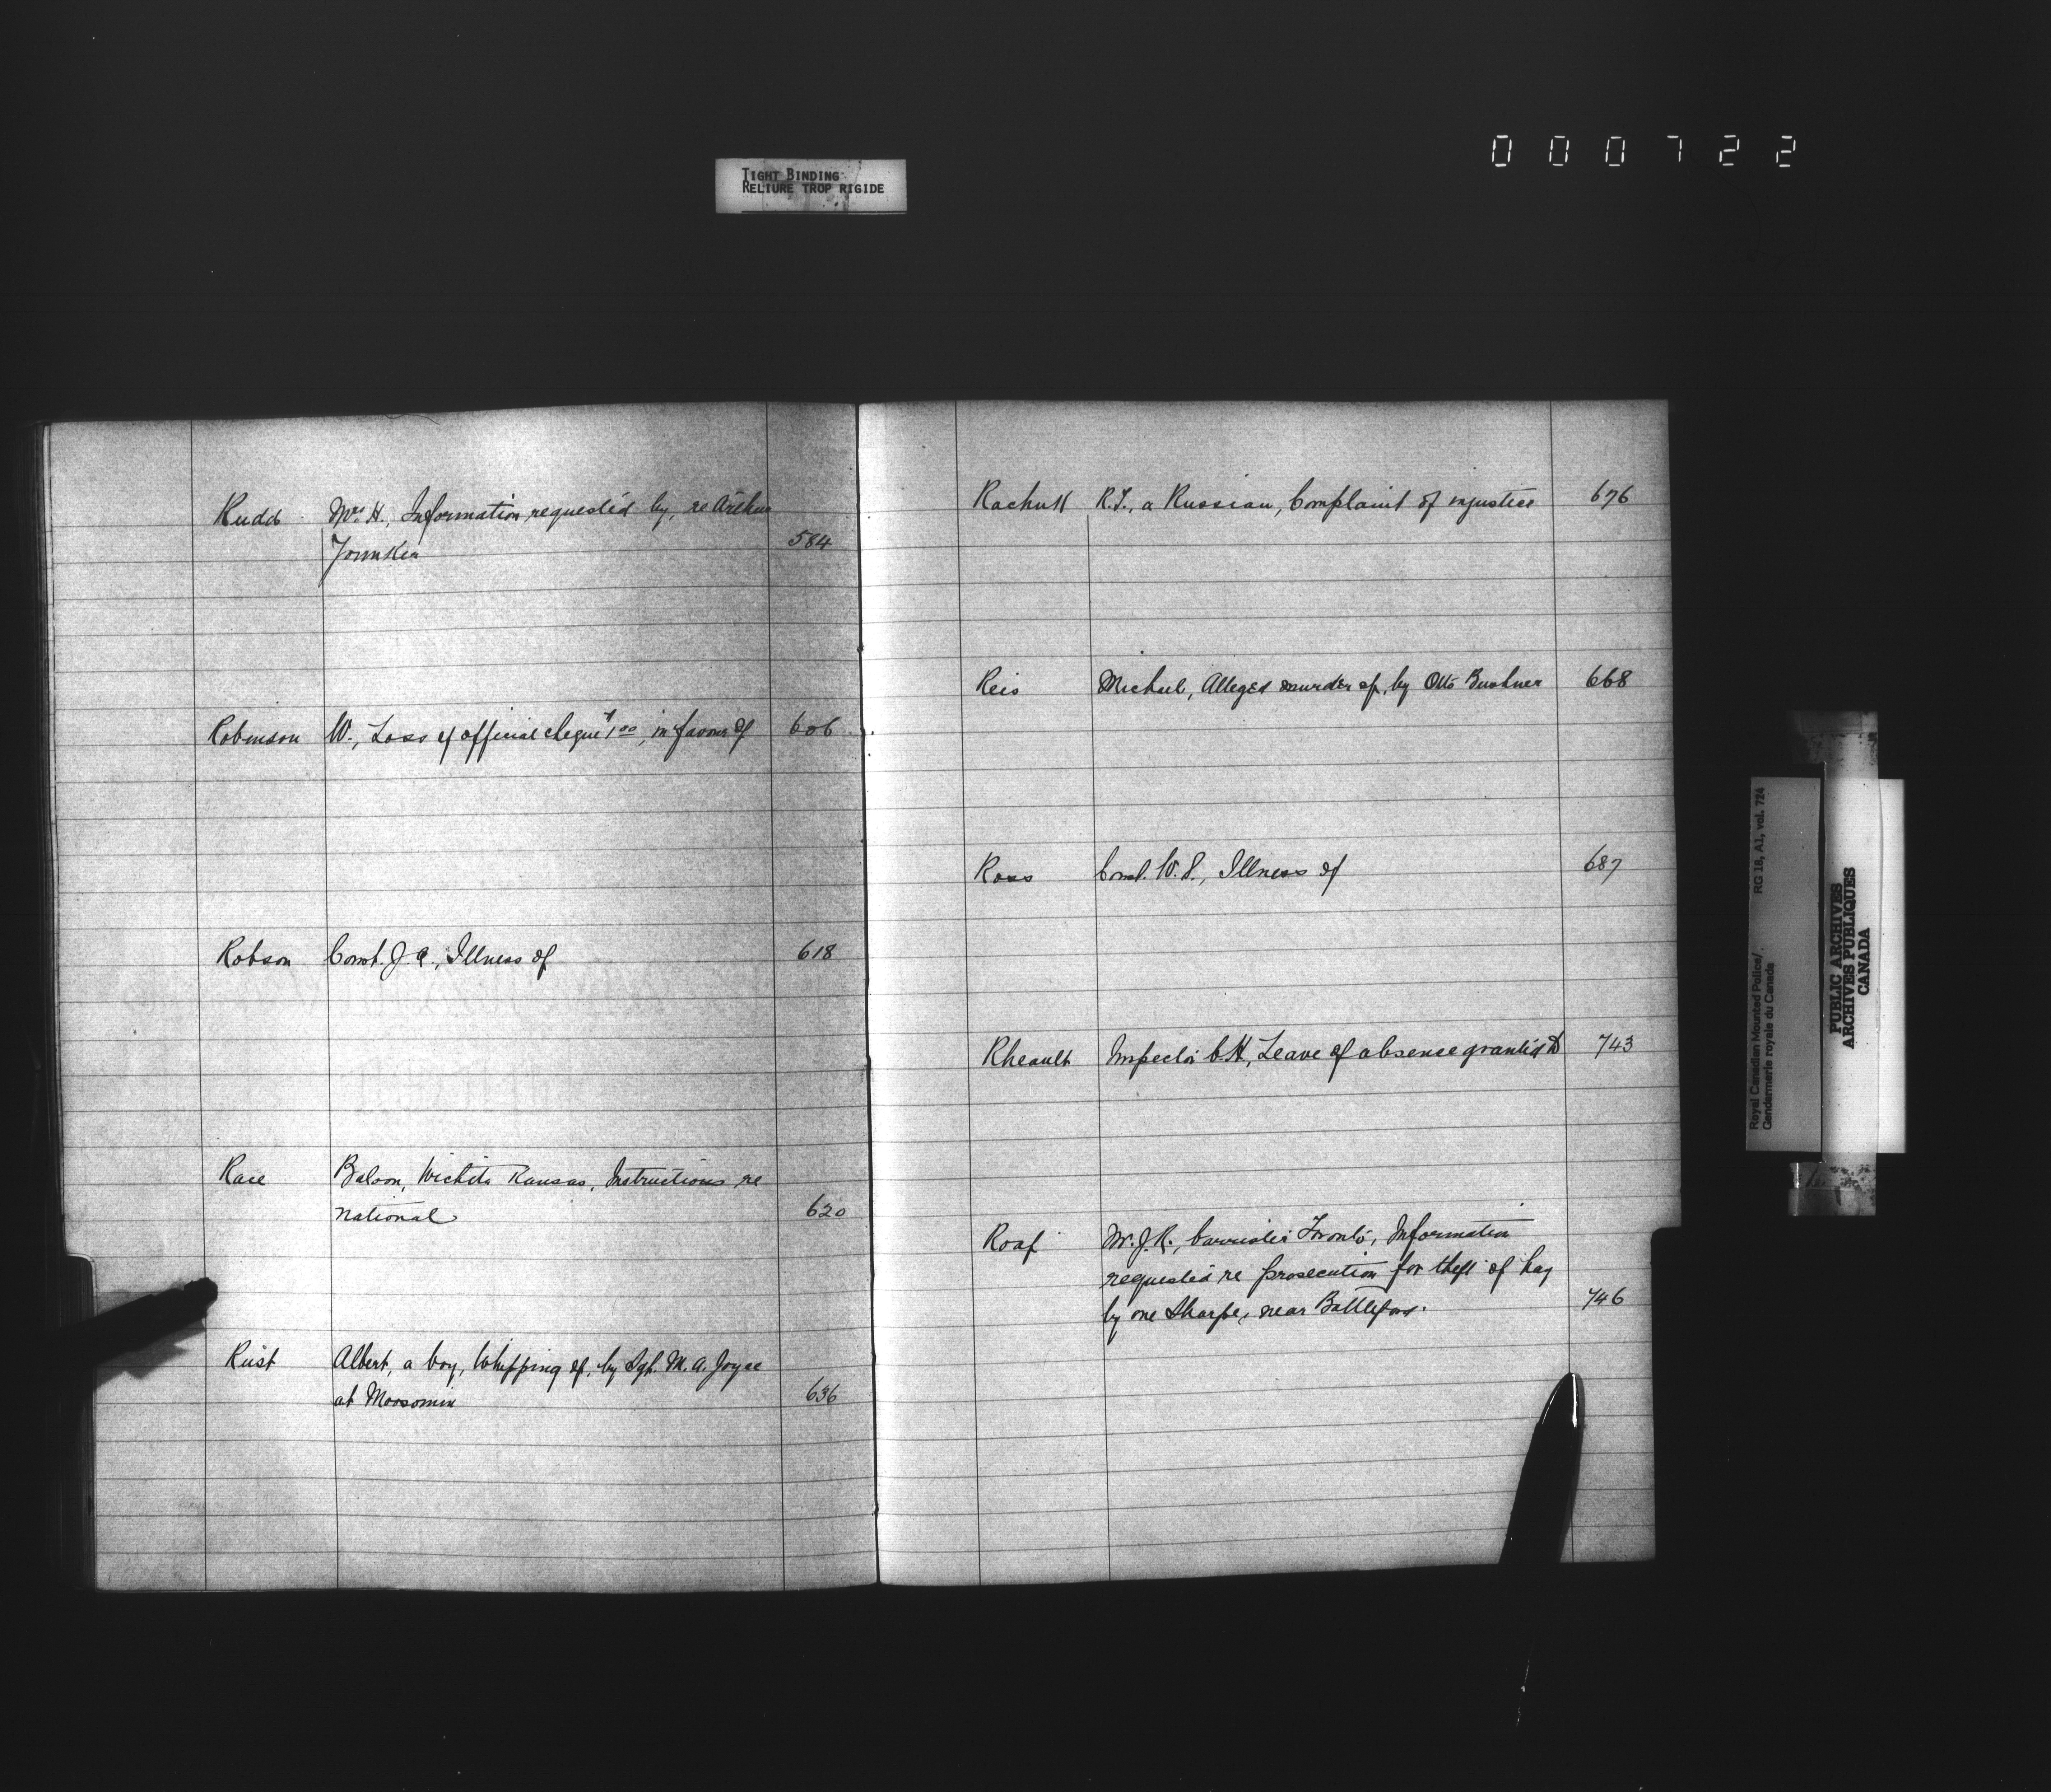 000722
TIGHT BINDING
RELIURE TROP RIGIDE
Rudd Mrs H., Information requested by, re Arthur
584
Robinson W., Loss of official cheque $1 00, in favour of 606
Robson Const. J. A., Illness of 618
Race Baloon, Wichita Kansas, Instructions re
National 620
Rust Albert, a boy, Whipping of, by Sgt. M. A. Joyce
at Moosomin 636
Rachuk R. T., a Russian, Complaint of injustice 676
Reis Michael, Alleged murder of, by Otto Bushner 668
Ross Const. W. S., Illness of 687
Rheault Inspector C. H., Leave of absence granted to 743
Roaf W. J. R., barrister Toronto, Information
requested re prosecution for theft of hay
by one Sharpe, near Battleford. 746
Royal Canadian Mounted Police/
Gendarmerie royale du Canada
RG 18, A1, vol. 724
PUBLIC ARCHIVES
ARCHIVES PUBLIQUES
CANADA